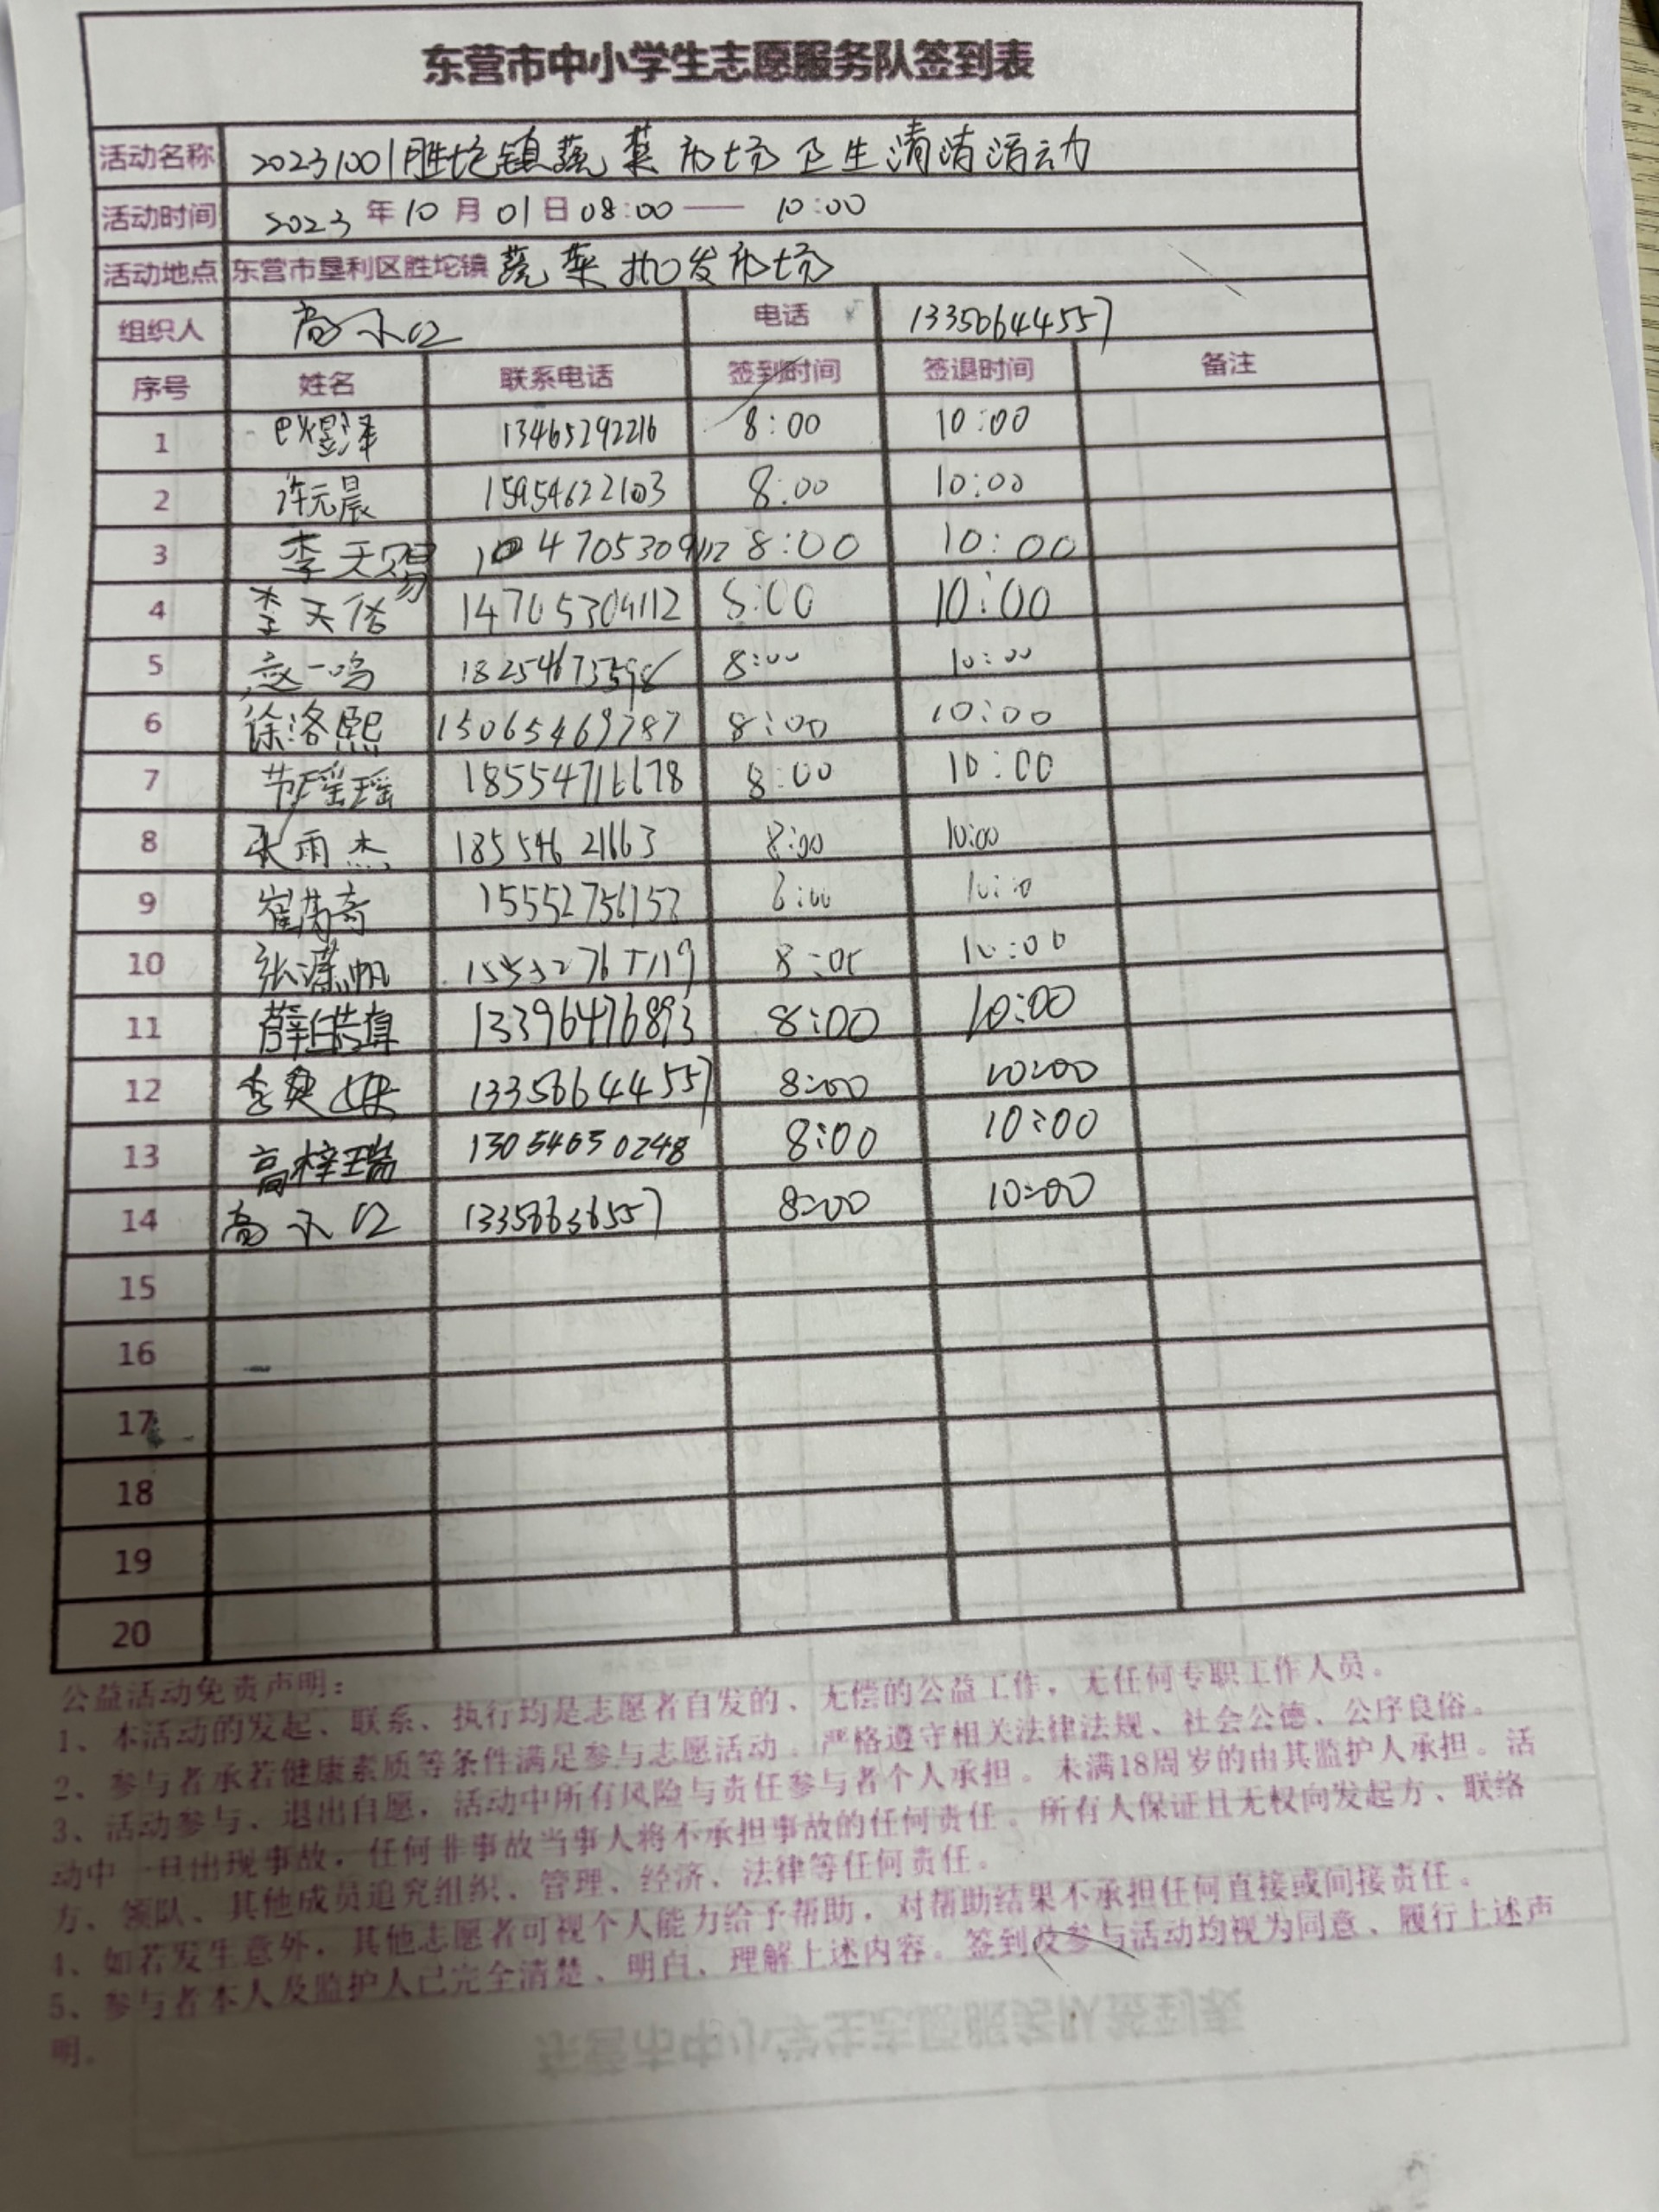 东营市中小学生志愿服务队签到表
活动名称 20231001胜坨镇蔬菜市场卫生清洁活动
活动时间 2023年10月01日08:00——10:00
活动地点 东营市垦利区胜坨镇蔬菜批发市场
组织人 高 电话 13356644557
序号 姓名 联系电话 签到时间 签退时间 备注
1 巴煜泽 13465292216 8:00 10:00
2 许元晨 15954622103 8:00 10:00
3 李天赐 8:00 10:00
4 李天佑 14705309112 8:00 10:00
5 赵一鸣 8:00 10:00
6 徐洛熙 15065469787 8:00 10:00
7 节瑶瑶 18554716678 8:00 10:00
8 张雨杰 18554621663 8:00 10:00
9 崔芮奇 8:00 10:00
10 张潇帆 8:00 10:00
11 薛 13396476893 8:00 10:00
12 李奕 13356644557 8:00 10:00
13 高梓瑞 13054650248 8:00 10:00
14 高 8:00 10:00
15
16
17
18
19
20
公益活动免责声明：
1、本活动的发起、联系、执行均是志愿者自发的、无偿的公益工作，无任何专职工作人员。
2、参与者承若健康素质等条件满足参与志愿活动。严格遵守相关法律法规、社会公德、公序良俗。
3、活动参与、退出自愿，活动中所有风险与责任参与者个人承担。未满18周岁的由其监护人承担。活
动中一旦出现事故，任何非事故当事人将不承担事故的任何责任。所有人保证且无权向发起方、联络
方、领队、其他成员追究组织、管理、经济、法律等任何责任。
4、如若发生意外，其他志愿者可视个人能力给予帮助，对帮助结果不承担任何直接或间接责任。
5、参与者本人及监护人已完全清楚、明白、理解上述内容。签到及参与活动均视为同意、履行上述声
明。